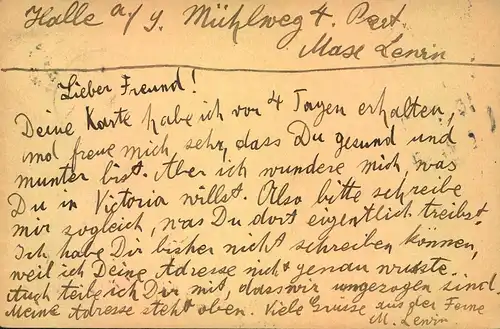 Halle a/S. Mühlweg 4. Part.
Max Lewin
Lieber Freund!
Deine Karte habe ich vor 4 Tagen erhalten,
und freue mich sehr, dass Du gesund und
munter bist. Aber ich wundere mich, was
Du in Victoria willst. Also bitte schreibe
mir sogleich, was Du dort eigentlich treibst.
Ich habe Dir bisher nicht schreiben können,
weil ich Deine Adresse nicht genau wusste.
Auch teile ich Dir mit, dass wir umgezogen sind.
Meine Adresse steht oben. Viele Grüsse aus der Ferne
M. Lewin